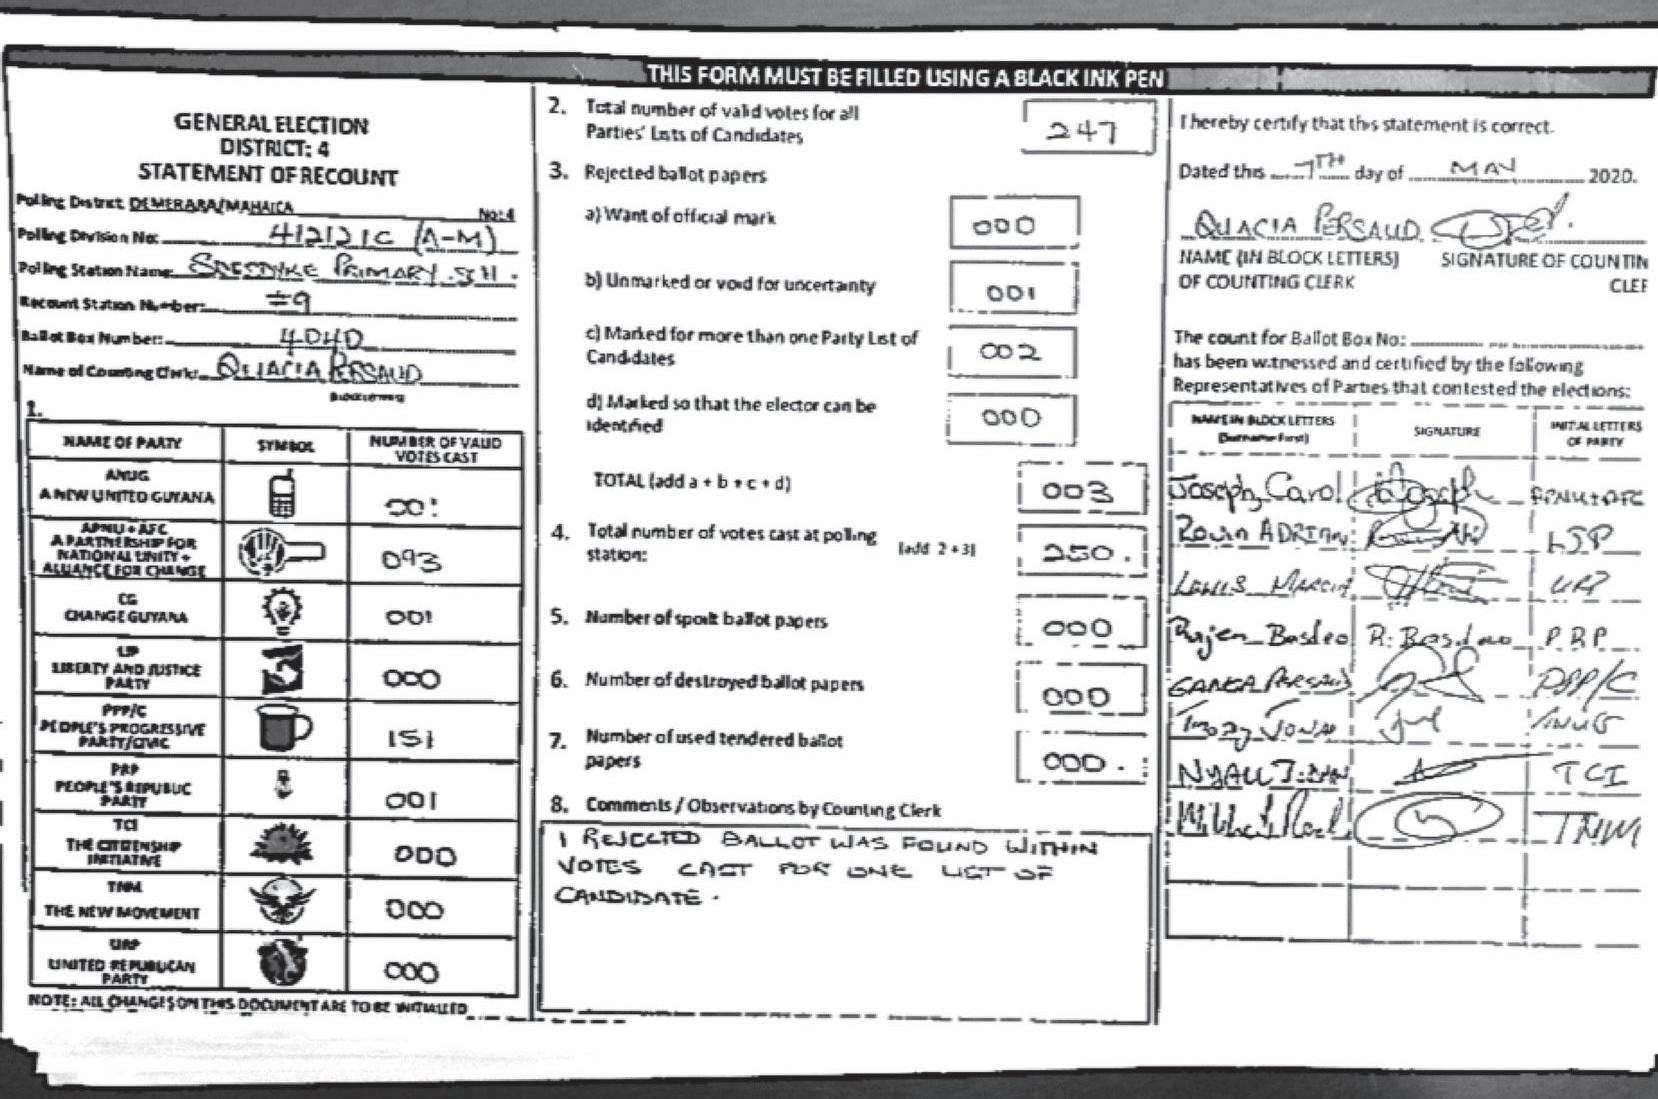 THIS FORM MUST BE FILLED USING A BLACK INK PEN
GENERAL ELECTION
DISTRICT: 4
STATEMENT OF RECOUNT
Polling District: DEMERARA/MAHAICA No: 4
Polling Division No: 412121C (A-M)
Polling Station Name: SOESDYKE PRIMARY SCH.
Recount Station Number: #9
Ballot Box Number: 4040
Name of Counting Clerk: QUACIA PERSAUD
(BLOCK LETTERS)
1.
NAME OF PARTY SYMBOL NUMBER OF VALID
VOTES CAST
ANUG
A NEW UNITED GUYANA 001
APNU + AFC
A PARTNERSHIP FOR
NATIONAL UNITY +
ALLIANCE FOR CHANGE 093
CG
CHANGE GUYANA 001
LJP
LIBERTY AND JUSTICE
PARTY 000
PPP/C
PEOPLE'S PROGRESSIVE
PARTY/CIVIC 151
PRP
PEOPLE'S REPUBLIC
PARTY 001
TCI
THE CITIZENSHIP
INITIATIVE 000
TNM
THE NEW MOVEMENT 000
URP
UNITED REPUBLICAN
PARTY 000
NOTE: ALL CHANGES ON THIS DOCUMENT ARE TO BE INITIALLED
2. Total number of valid votes for all
Parties' Lists of Candidates 247
3. Rejected ballot papers
a) Want of official mark 000
b) Unmarked or void for uncertainty 001
c) Marked for more than one Party List of
Candidates 002
d) Marked so that the elector can be
identified 000
TOTAL (add a + b + c + d) 003
4. Total number of votes cast at polling
station: [add 2 + 3] 250.
5. Number of spoilt ballot papers 000
6. Number of destroyed ballot papers 000
7. Number of used tendered ballot
papers 000.
8. Comments / Observations by Counting Clerk
1 REJECTED BALLOT WAS FOUND WITHIN
VOTES CAST FOR ONE LIST OF
CANDIDATE.
I hereby certify that this statement is correct.
Dated this 7TH day of MAY 2020.
QUACIA PERSAUD
NAME (IN BLOCK LETTERS) SIGNATURE OF COUNTIN
OF COUNTING CLERK CLEF
The count for Ballot Box No:
has been witnessed and certified by the following
Representatives of Parties that contested the elections:
NAME IN BLOCK LETTERS SIGNATURE INITIAL LETTERS
(Surname First) OF PARTY
Joseph, Carol APNU+AFC
ADRIAN LJP
LEWIS URP
Rajen Basdeo R. Basdeo PRP
GANGA PERSAUD PPP/C
ANUG
NYALL TCI
TNM